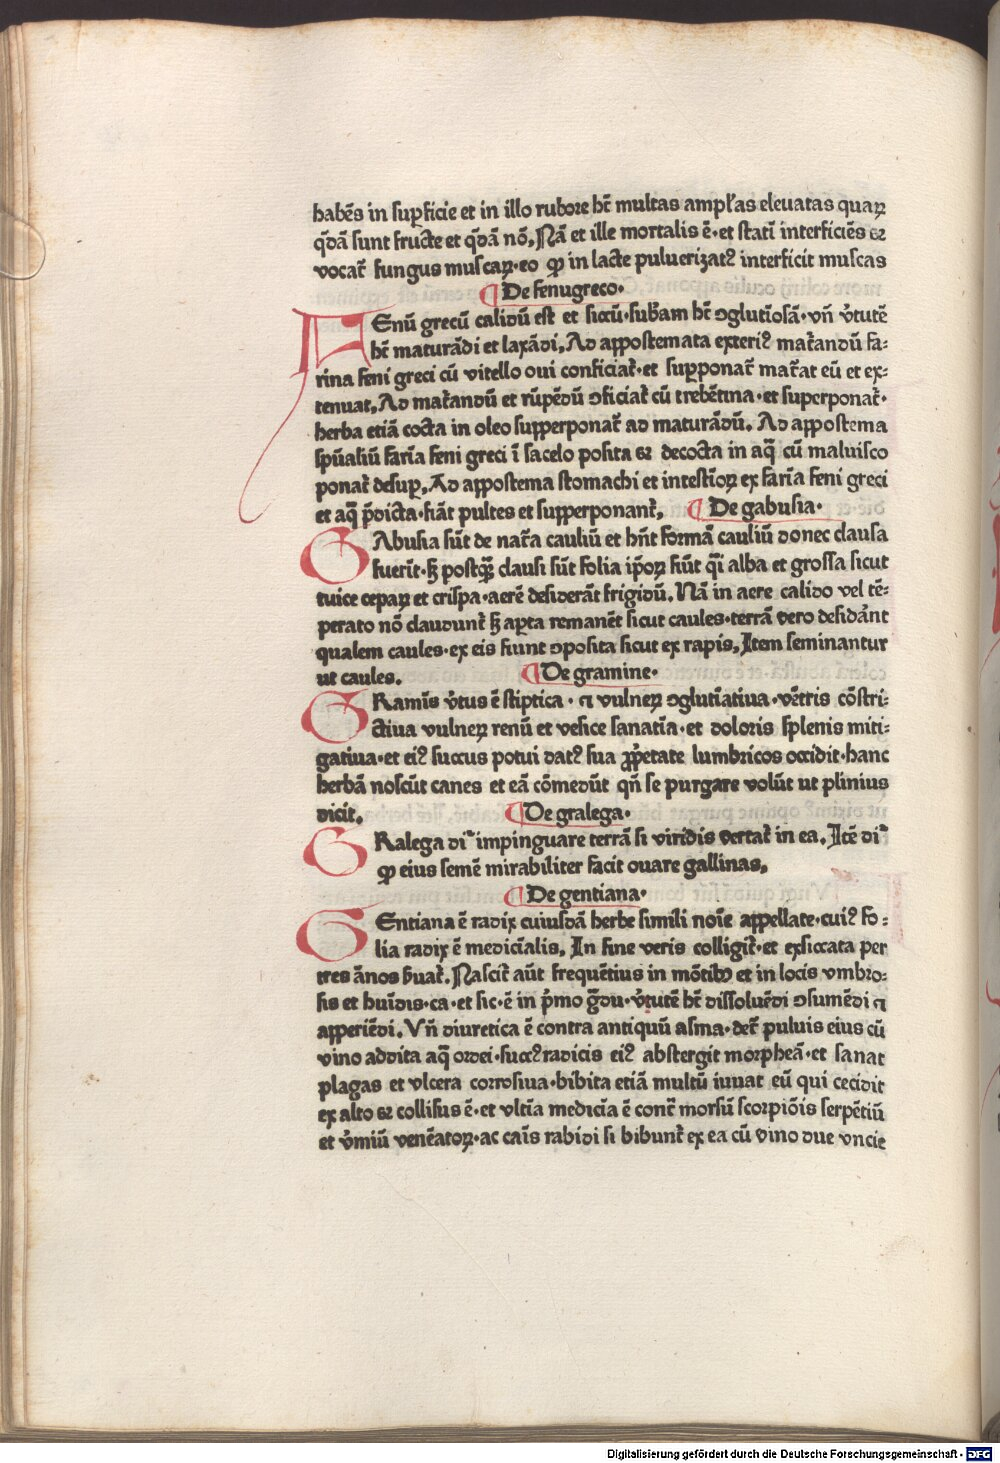 habēs in suꝑficie et in illo rubore hꝫ multas ampl'as eleuatas quaꝝ
q̄dā sunt fructe et q̄dā nō. Nā et ille mortalis ē · et statī interficiēs ꝫ
vocat᷑ fungus muscaꝝ · eo ꝙ in lacte puluerizatꝰ interficit muscas
¶ De fenugreco ·
FEnū grecū calidū est et siccū · sub̄am hꝫ ꝯglutīosā · vn̄ v̓tutē
hꝫ maturādi et laxādi. Ad appostemata exteriꝰ mat᷑andū fa⸗
rina feni greci cū vitello oui conficiat᷑ · et suꝑponat᷑ mat᷑at eū et ex⸗
tenuat. Ad mat᷑andū et rūpēdū ꝯficiat᷑ cū trebētina · et superponat᷑ ·
herba etiā cocta in oleo supperponat᷑ ad maturādū. Ad appostema
sp̄ualiū farīa feni greci ī sacelo posita ꝫ decocta in aq̄ cū maluisco
ponat᷑ desuꝑ. Ad appostema stomachi et intestīoꝝ ex farīa feni greci
et aq̄ p̄dicta · fiāt pultes et supperponant᷑. ¶ De gabusia ·
GAbusia sūt de nat᷑a cauliū et hn̄t formā cauliū donec clausa
fuerīt · sꝫ postq̄ꝫ clausi sūt folia ip̄oꝝ fiūt q̄i alba et grossa sicut
tuice cepaꝝ et crispa · aerē desiderāt frigidū. Nā in aere calido vel tē⸗
perato nō claudunt᷑ sꝫ aꝑta remanēt sicut caules · terrā vero desid̓ant
qualem caules · ex eis fiunt ꝯposita sicut ex rapis. Item seminantur
ut caules. ¶ De gramine ·
GRamīs v̓tus ē stiptica · ⁊ vulneꝝ ꝯglutīatiua · vētris cōstri⸗
ctiua vulneꝝ renū et vesice sanatīa · et doloris splenis miti⸗
gatiua · et eiꝰ succus potui datꝰ sua ꝓp̓etate lumbricos occidit · hanc
herbā noscūt canes et eā cōmedūt qn̄ se purgare volūt ut plinius
dicit. ¶ De gralega ·
GRalega di᷑ impinguare terrā si viridis vertat᷑ in ea. Itē di᷑
ꝙ eius semē mirabiliter facit ouare gallinas.
¶ De gentiana ·
GEntiana ē radix cuiusdā herbe simili noīe appellate · cuiꝰ fo⸗
lia radix ē medicīalis. In fine veris colligit᷑ · et exsiccata per
tres ānos s̓uat᷑. Nascit᷑ aūt frequētius in mōtibꝰ et in locis vmbro⸗
sis et huīdis · ca · et sic · ē in p̓mo g̓du · v̓tutē hꝫ dissoluēdi ꝯsumēdi ⁊
apperiēdi. Vn̄ diuretica ē contra antiquū asma · det᷑ puluis eius cū
vino addita aq̄ ordei · succꝰ radicis eiꝰ abstergit morpheā · et sanat
plagas et vlcera corrosiua · bibita etiā multū iuuat eū qui cecidit
ex alto ꝫ collisus ē · et vltīa medicīa ē cont᷑ morsū scorpiōis serpētiū
et v̓miū venēatoꝝ · ac caīs rabidi si bibunt᷑ ex ea cū vino due vncie
Digitalisierung gefördert durch die Deutsche Forschungsgemeinschaft - DFG